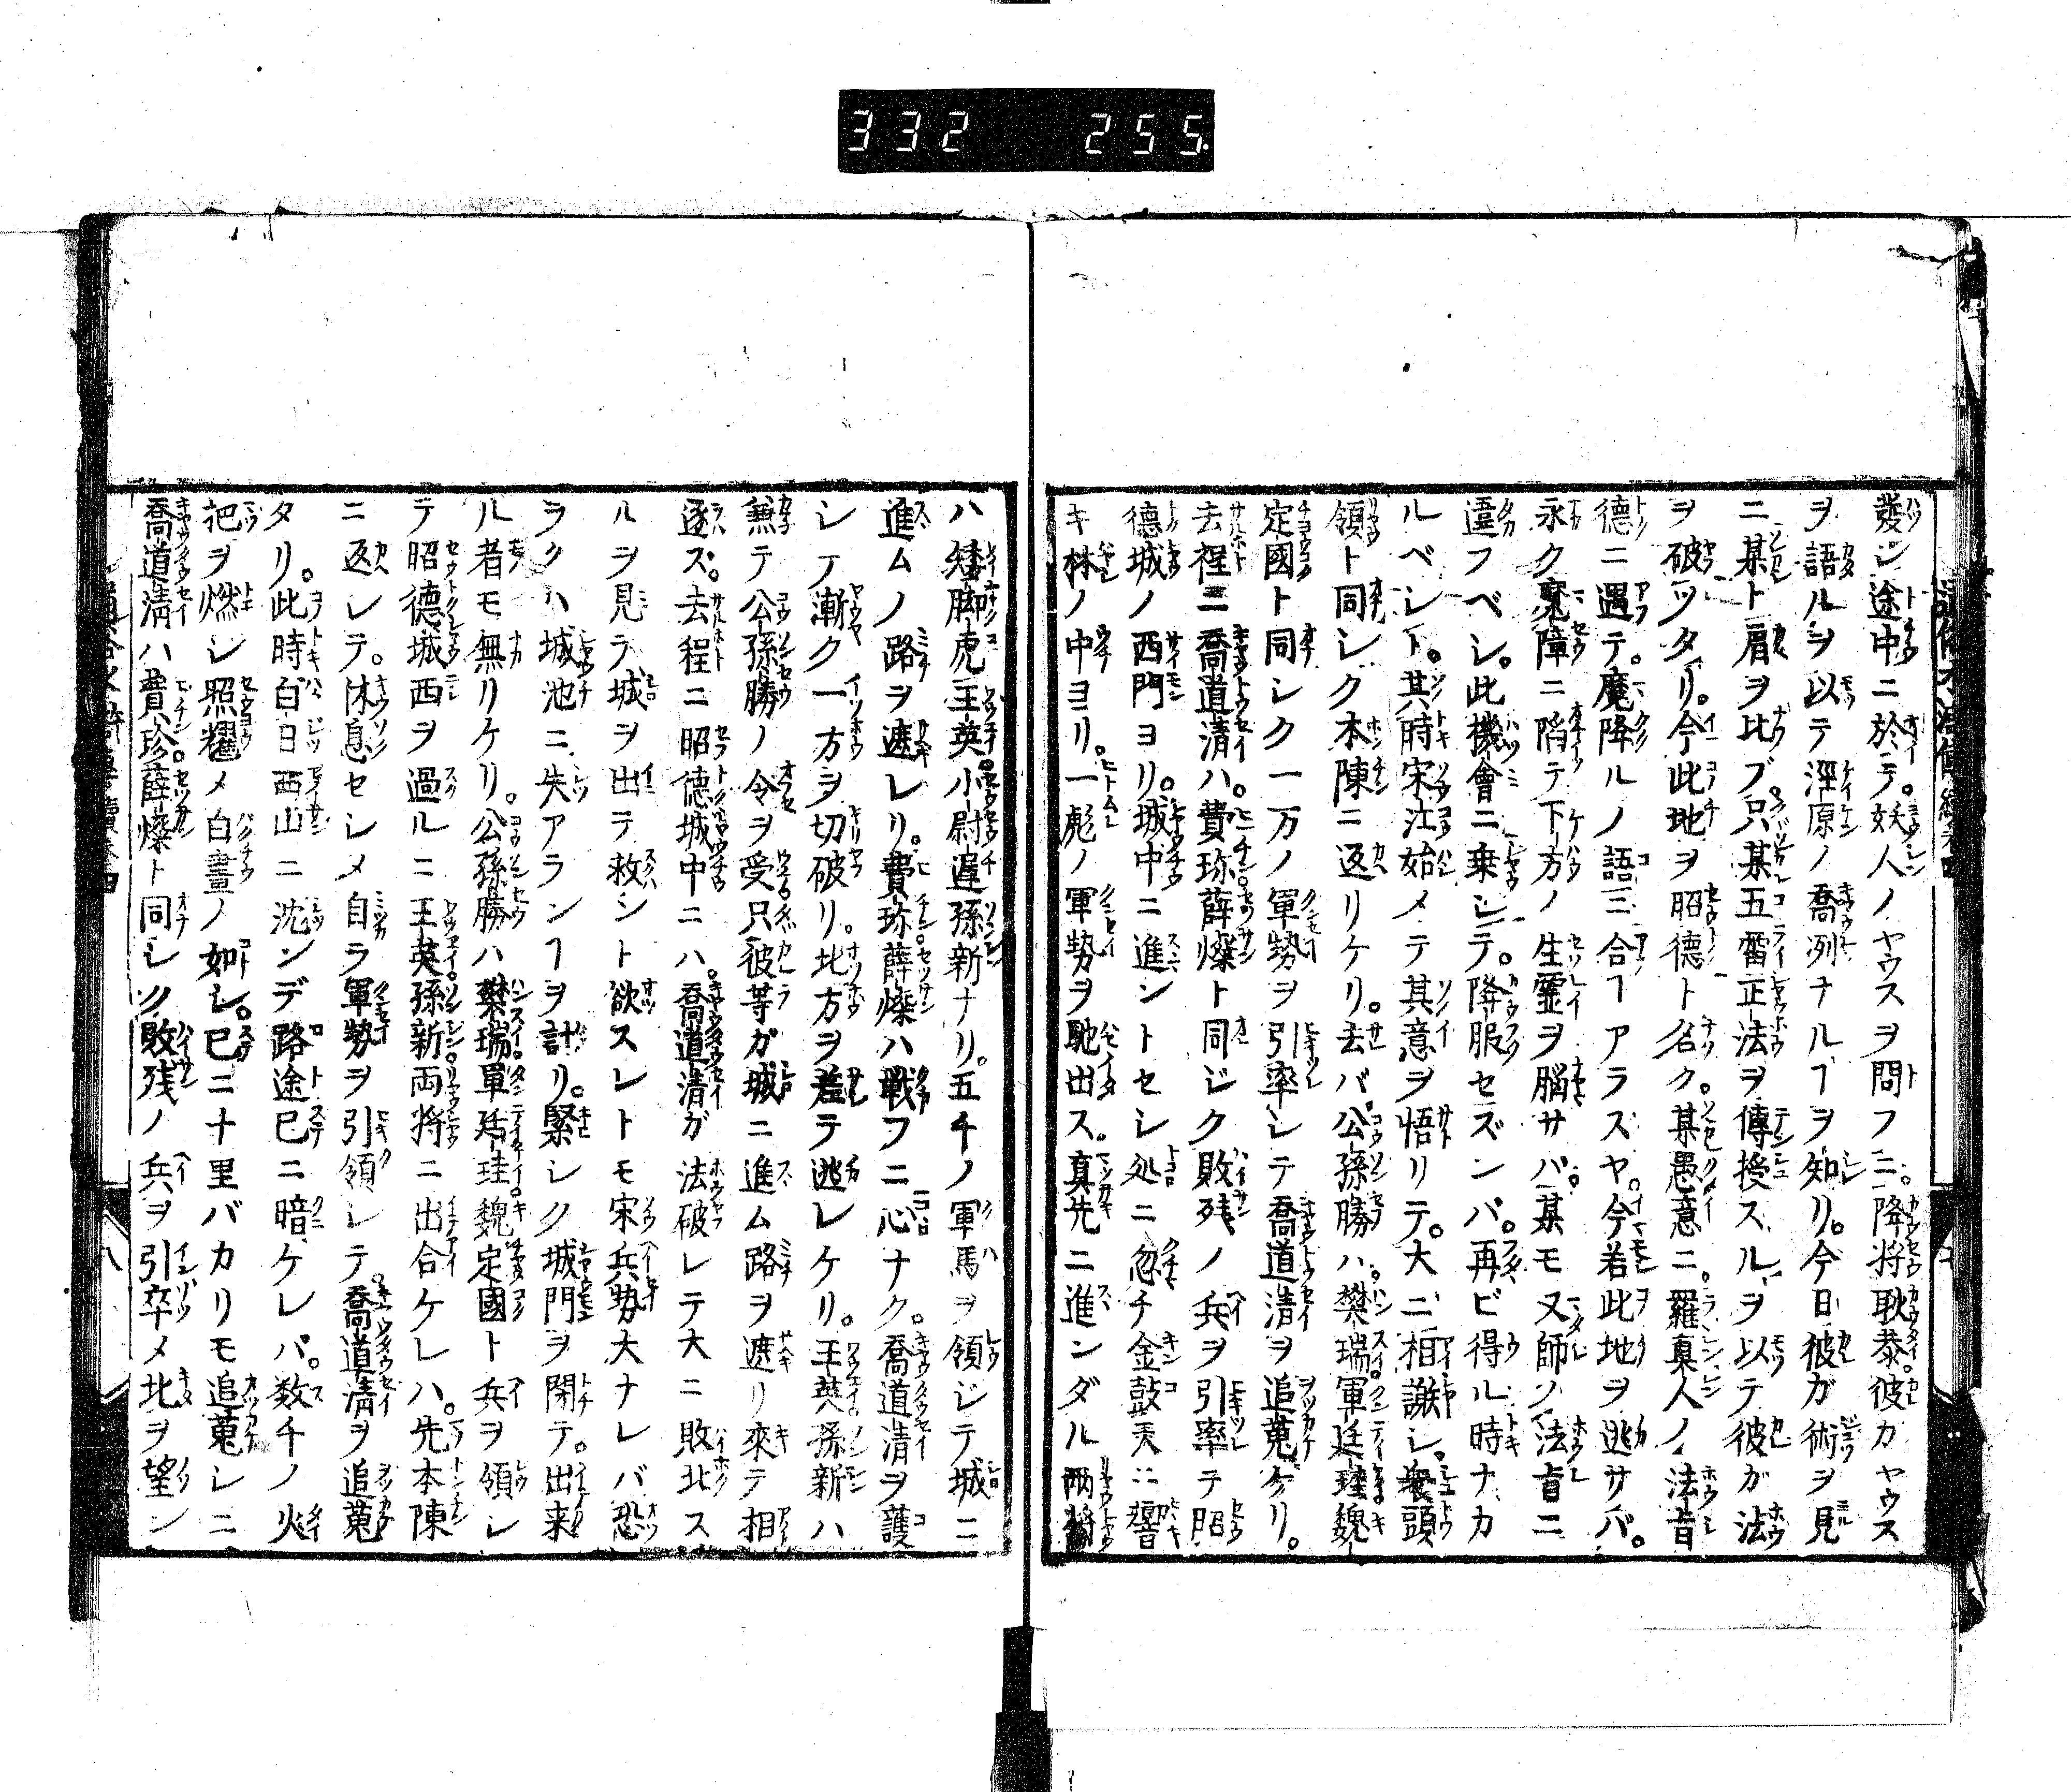 332 255
發シ途中ニ於テ。妖人ノヤウスヲ問フニ。降将耿恭彼カヤウス
ヲ語ルヲ以テ涇原ノ喬冽ナルヿヲ知リ。今日彼ガ術ヲ見
ニ某ト肩ヲ比ブ。只某五雷正法ヲ傳授スルヲ以テ彼ガ法
ヲ破ツタリ。今此地ヲ昭徳ト名ク。某愚意ニ。羅真人ノ法旨
徳ニ遇テ。魔降ルノ語ニ合ヿアラスヤ。今若此地ヲ逃サバ。
永ク魔障ニ陷テ下方ノ生霊ヲ脳サバ。某モ又師ノ法旨ニ
違フベシ。此機會ニ乗シテ。降服セズンバ。再ビ得ル時ナカ
ルベシト。其時宋江始メテ其意ヲ悟リテ。大ニ相謝シ。衆頭
領ト同シク本陳ニ返リケリ。去バ公孫勝ハ。樊瑞軍廷珪魏
定國ト同シク一万ノ軍勢ヲ引率シテ喬道清ヲ追蒐ケリ。
去程ニ喬道清ハ。費珍薛燦ト同ジク敗残ノ兵ヲ引率テ昭
徳城ノ西門ヨリ。城中ニ進ントセシ処ニ忽チ金鼓天ニ響
キ林ノ中ヨリ。一彪ノ軍勢ヲ馳出ス。真先ニ進ンダル両将
ハ矮脚虎王英。小尉遅孫新ナリ。五千ノ軍馬ヲ領ジテ城ニ
進ムノ路ヲ遮レリ。費珍薛燦ハ戦フニ心ナク。喬道清ヲ護
シテ漸ク一方ヲ切破リ。北方ヲ差テ逃レケリ。王英孫新ハ
兼テ公孫勝ノ令ヲ受只彼等ガ城ニ進ム路ヲ遮リ來テ相
逐ズ。去程ニ昭徳城中ニハ。喬道清ガ法破レテ大ニ敗北ス
ルヲ見テ城ヲ出テ救ント欲スレトモ宋兵勢大ナレバ恐
ラクハ城池ニ失アランヿヲ計リ。緊シク城門ヲ閉テ。出来
ル者モ無リケリ。公孫勝ハ樊瑞軍廷珪魏定國ト兵ヲ領シ
テ昭徳城西ヲ過ルニ王英孫新両将ニ出合ケレハ。先本陳
ニ返シテ。休息セシメ自ラ軍勢ヲ引領シテ。喬道清ヲ追蒐
タリ。此時白日西山ニ沈ンデ路途已ニ暗ケレバ。数千ノ火
把ヲ燃シ照耀メ白晝ノ如シ。已ニ十里バカリモ追蒐シニ
喬道清ハ費珍薛燦ト同シク敗残ノ兵ヲ引卒メ北ヲ望ン
八